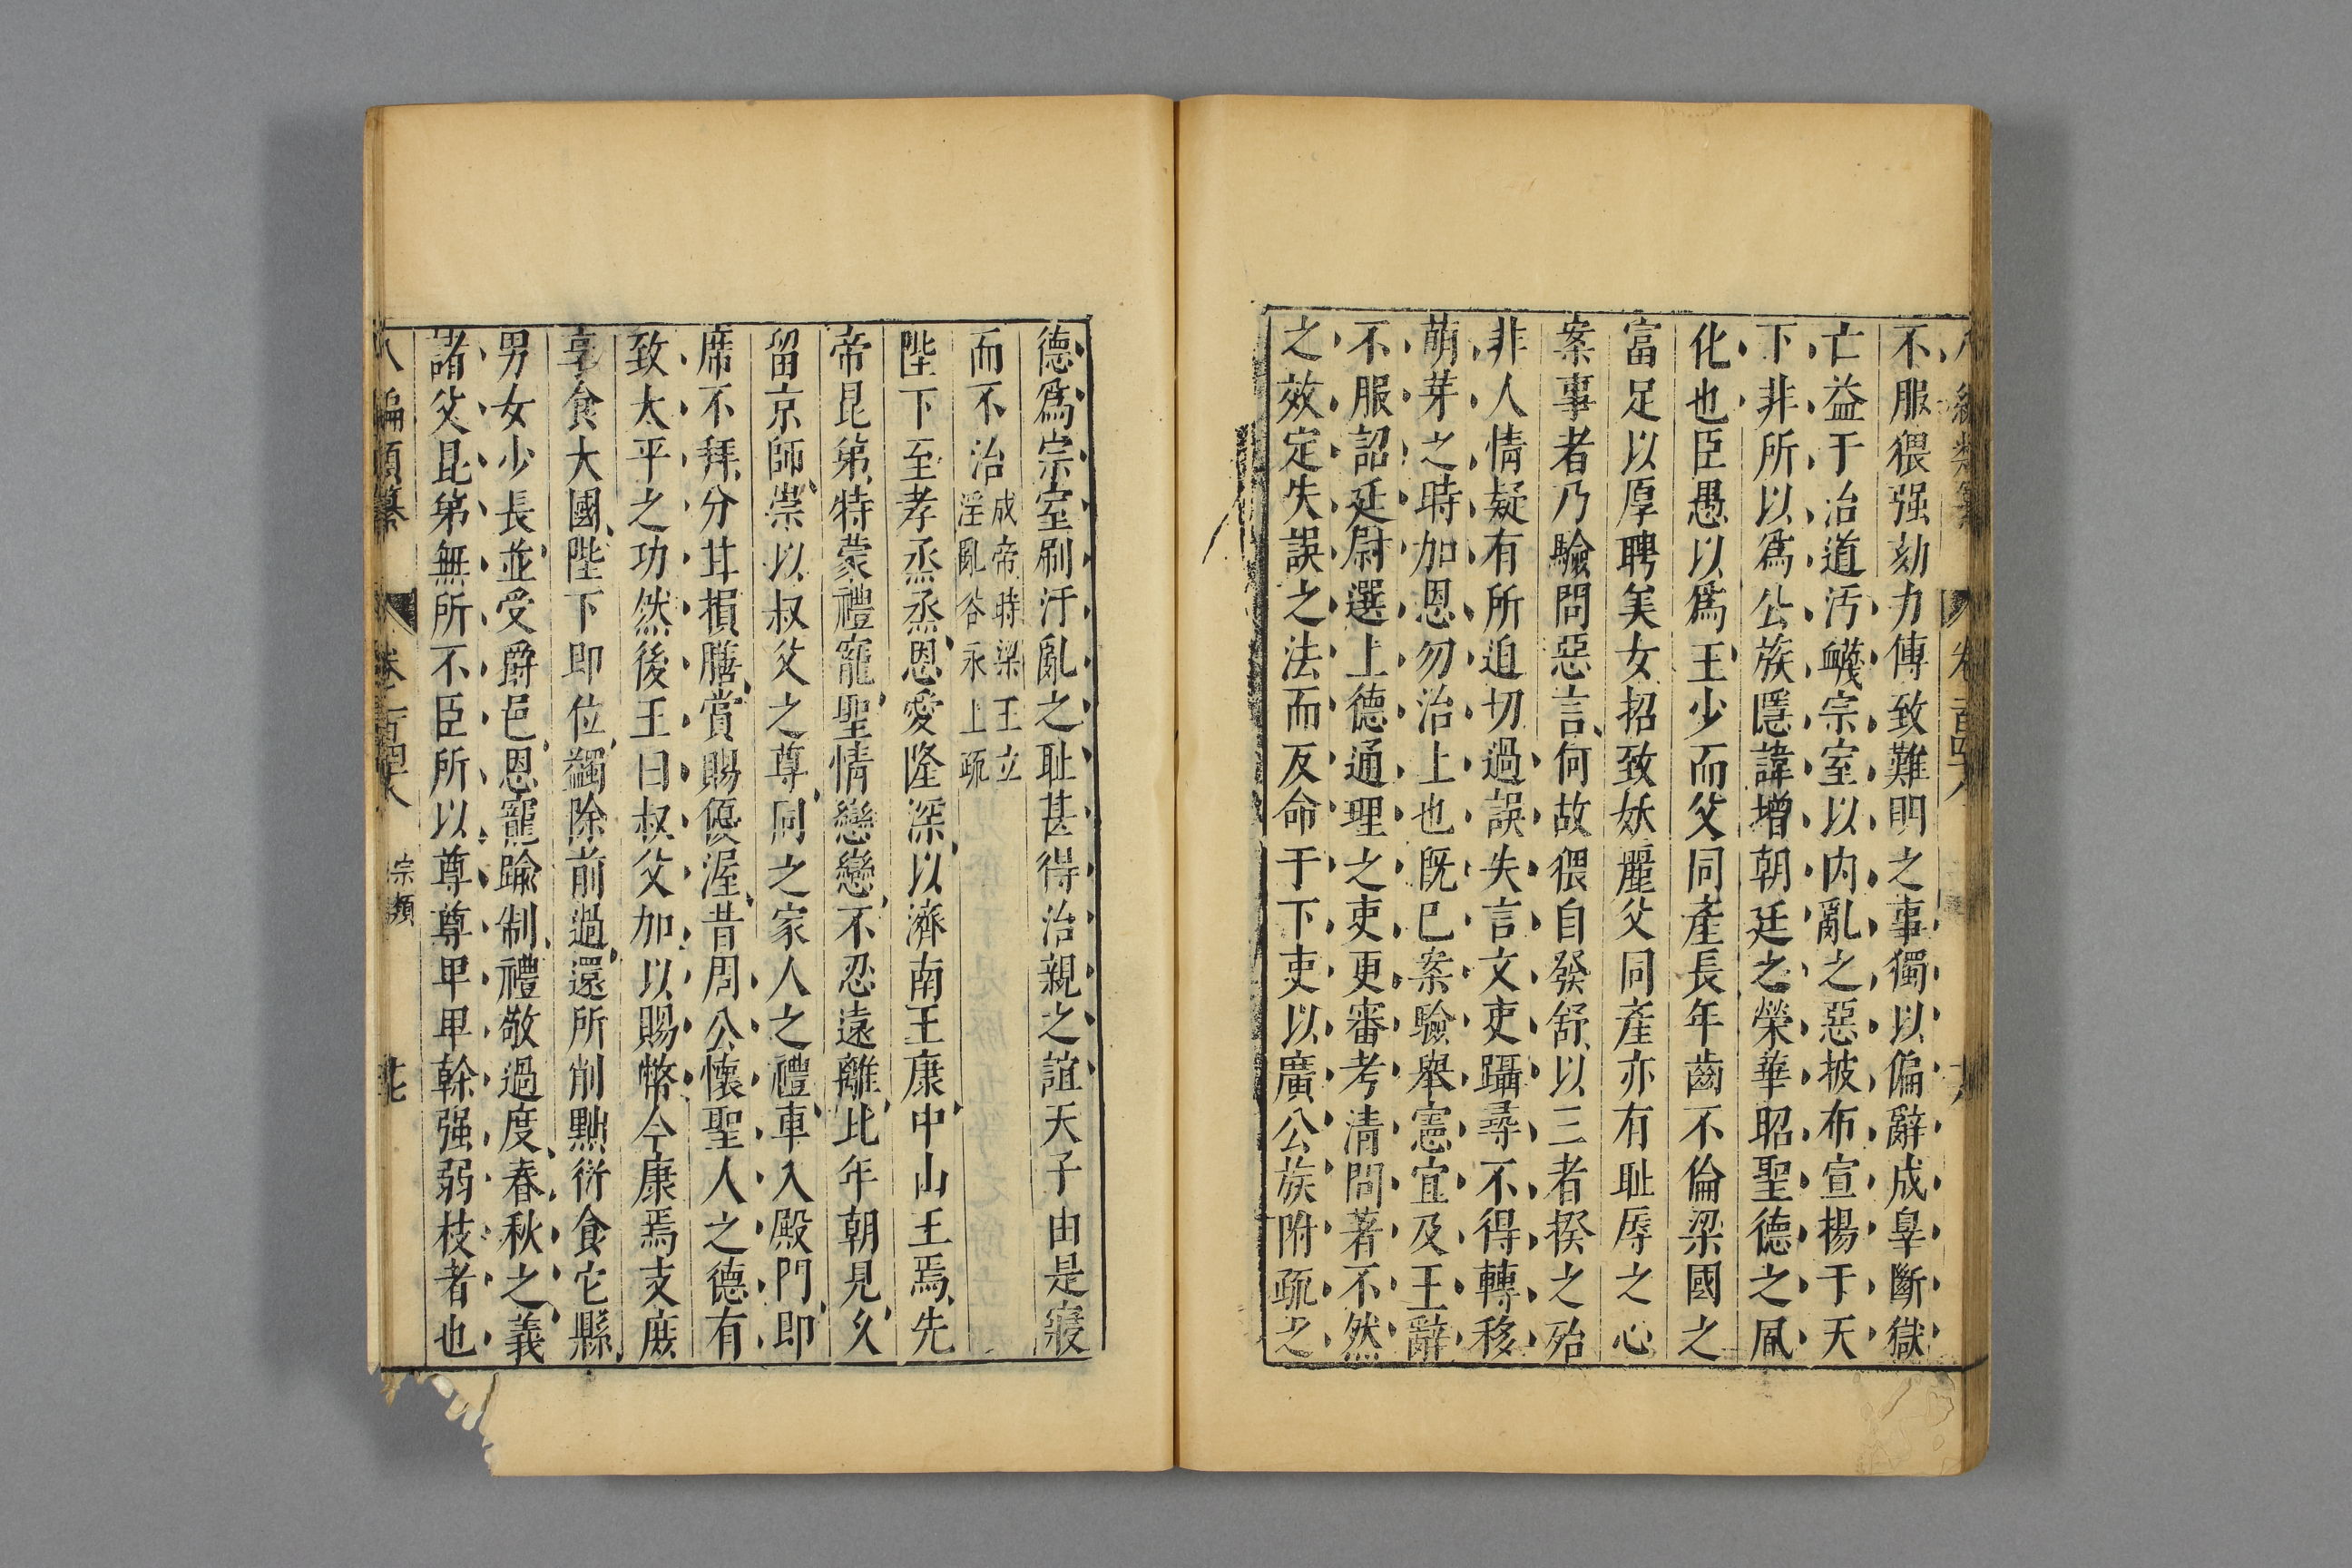 不服猥强劾力傳致難明之事獨以偏辭成辠斷獄
亡益于治道汚衊宗室以内亂之惡披布宣揚于天
下非所以爲公族隱諱增朝廷之榮華昭聖德之風
化也臣愚以爲王少而父同產長年齒不倫梁國之
富足以厚聘美女招致妖麗父同產亦有耻辱之心
案事者乃驗問惡言何故猥自發舒以三者揆之殆
非人情疑有所迫切過誤失言文吏躡尋不得轉移
萌芽之時加恩勿治上也既已案驗舉憲宜及王辭
不服詔廷尉選上德通理之吏更審考清問著不然
之效定失誤之法而反命于下吏以廣公族附疏之
德爲宗室刷汙亂之耻甚得治親之誼天子由是寢
而不治
成帝時梁王立
淫亂谷永上疏
陛下至孝烝烝恩愛隆深以濟南王康中山王焉先
帝昆弟特蒙禮寵聖情戀戀不忍遠離比年朝見久
留京師崇以叔父之尊同之家人之禮車入殿門即
席不拜分甘損膳賞賜優渥昔周公懷聖人之德有
致太平之功然後王曰叔父加以賜幣今康焉支庶
享食大國陛下即位蠲除前過還所削黜衍食它縣
男女少長並受爵邑恩寵踰制禮敬過度春秋之義
諸父昆弟無所不臣所以尊尊卑卑幹强弱枝者也
八編類纂 卷一百四十八 宗類